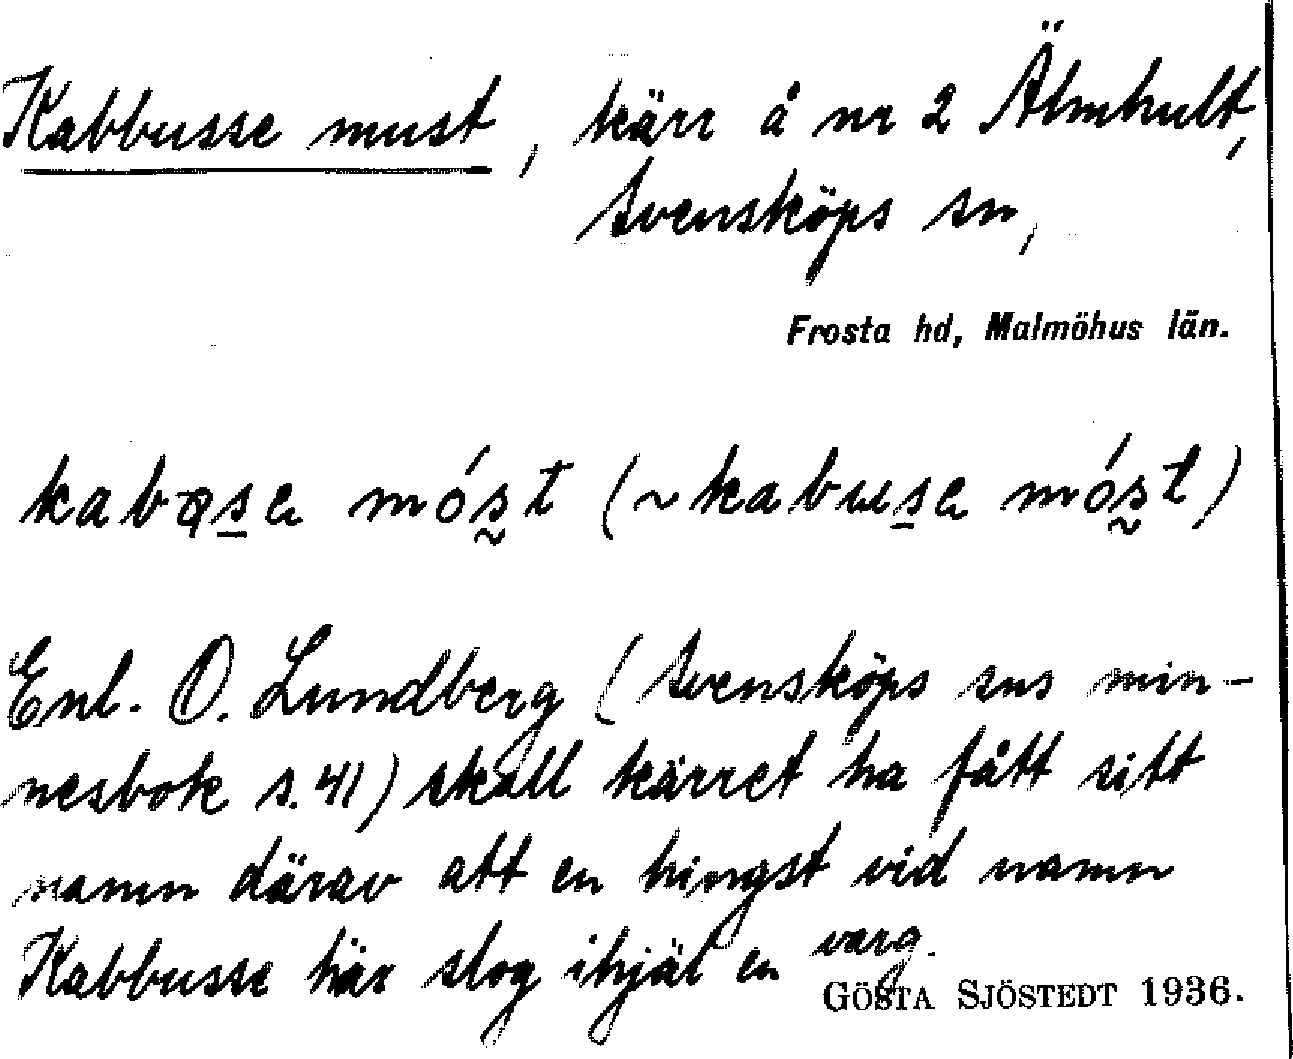 Kabbusse must, kärr å nr 2 Älmhult,
Svensköps sn,
Frosta hd, Malmöhus län.
kabǫse móst (~ kabuse móst)
Enl. O. Lundberg (Svensköps sns min-
nesbok s. 41) skall kärret ha fått sitt
namn därav att en hingst vid namn
Kabbusse här slog ihjäl en varg.
GÖSTA SJÖSTEDT 1936.